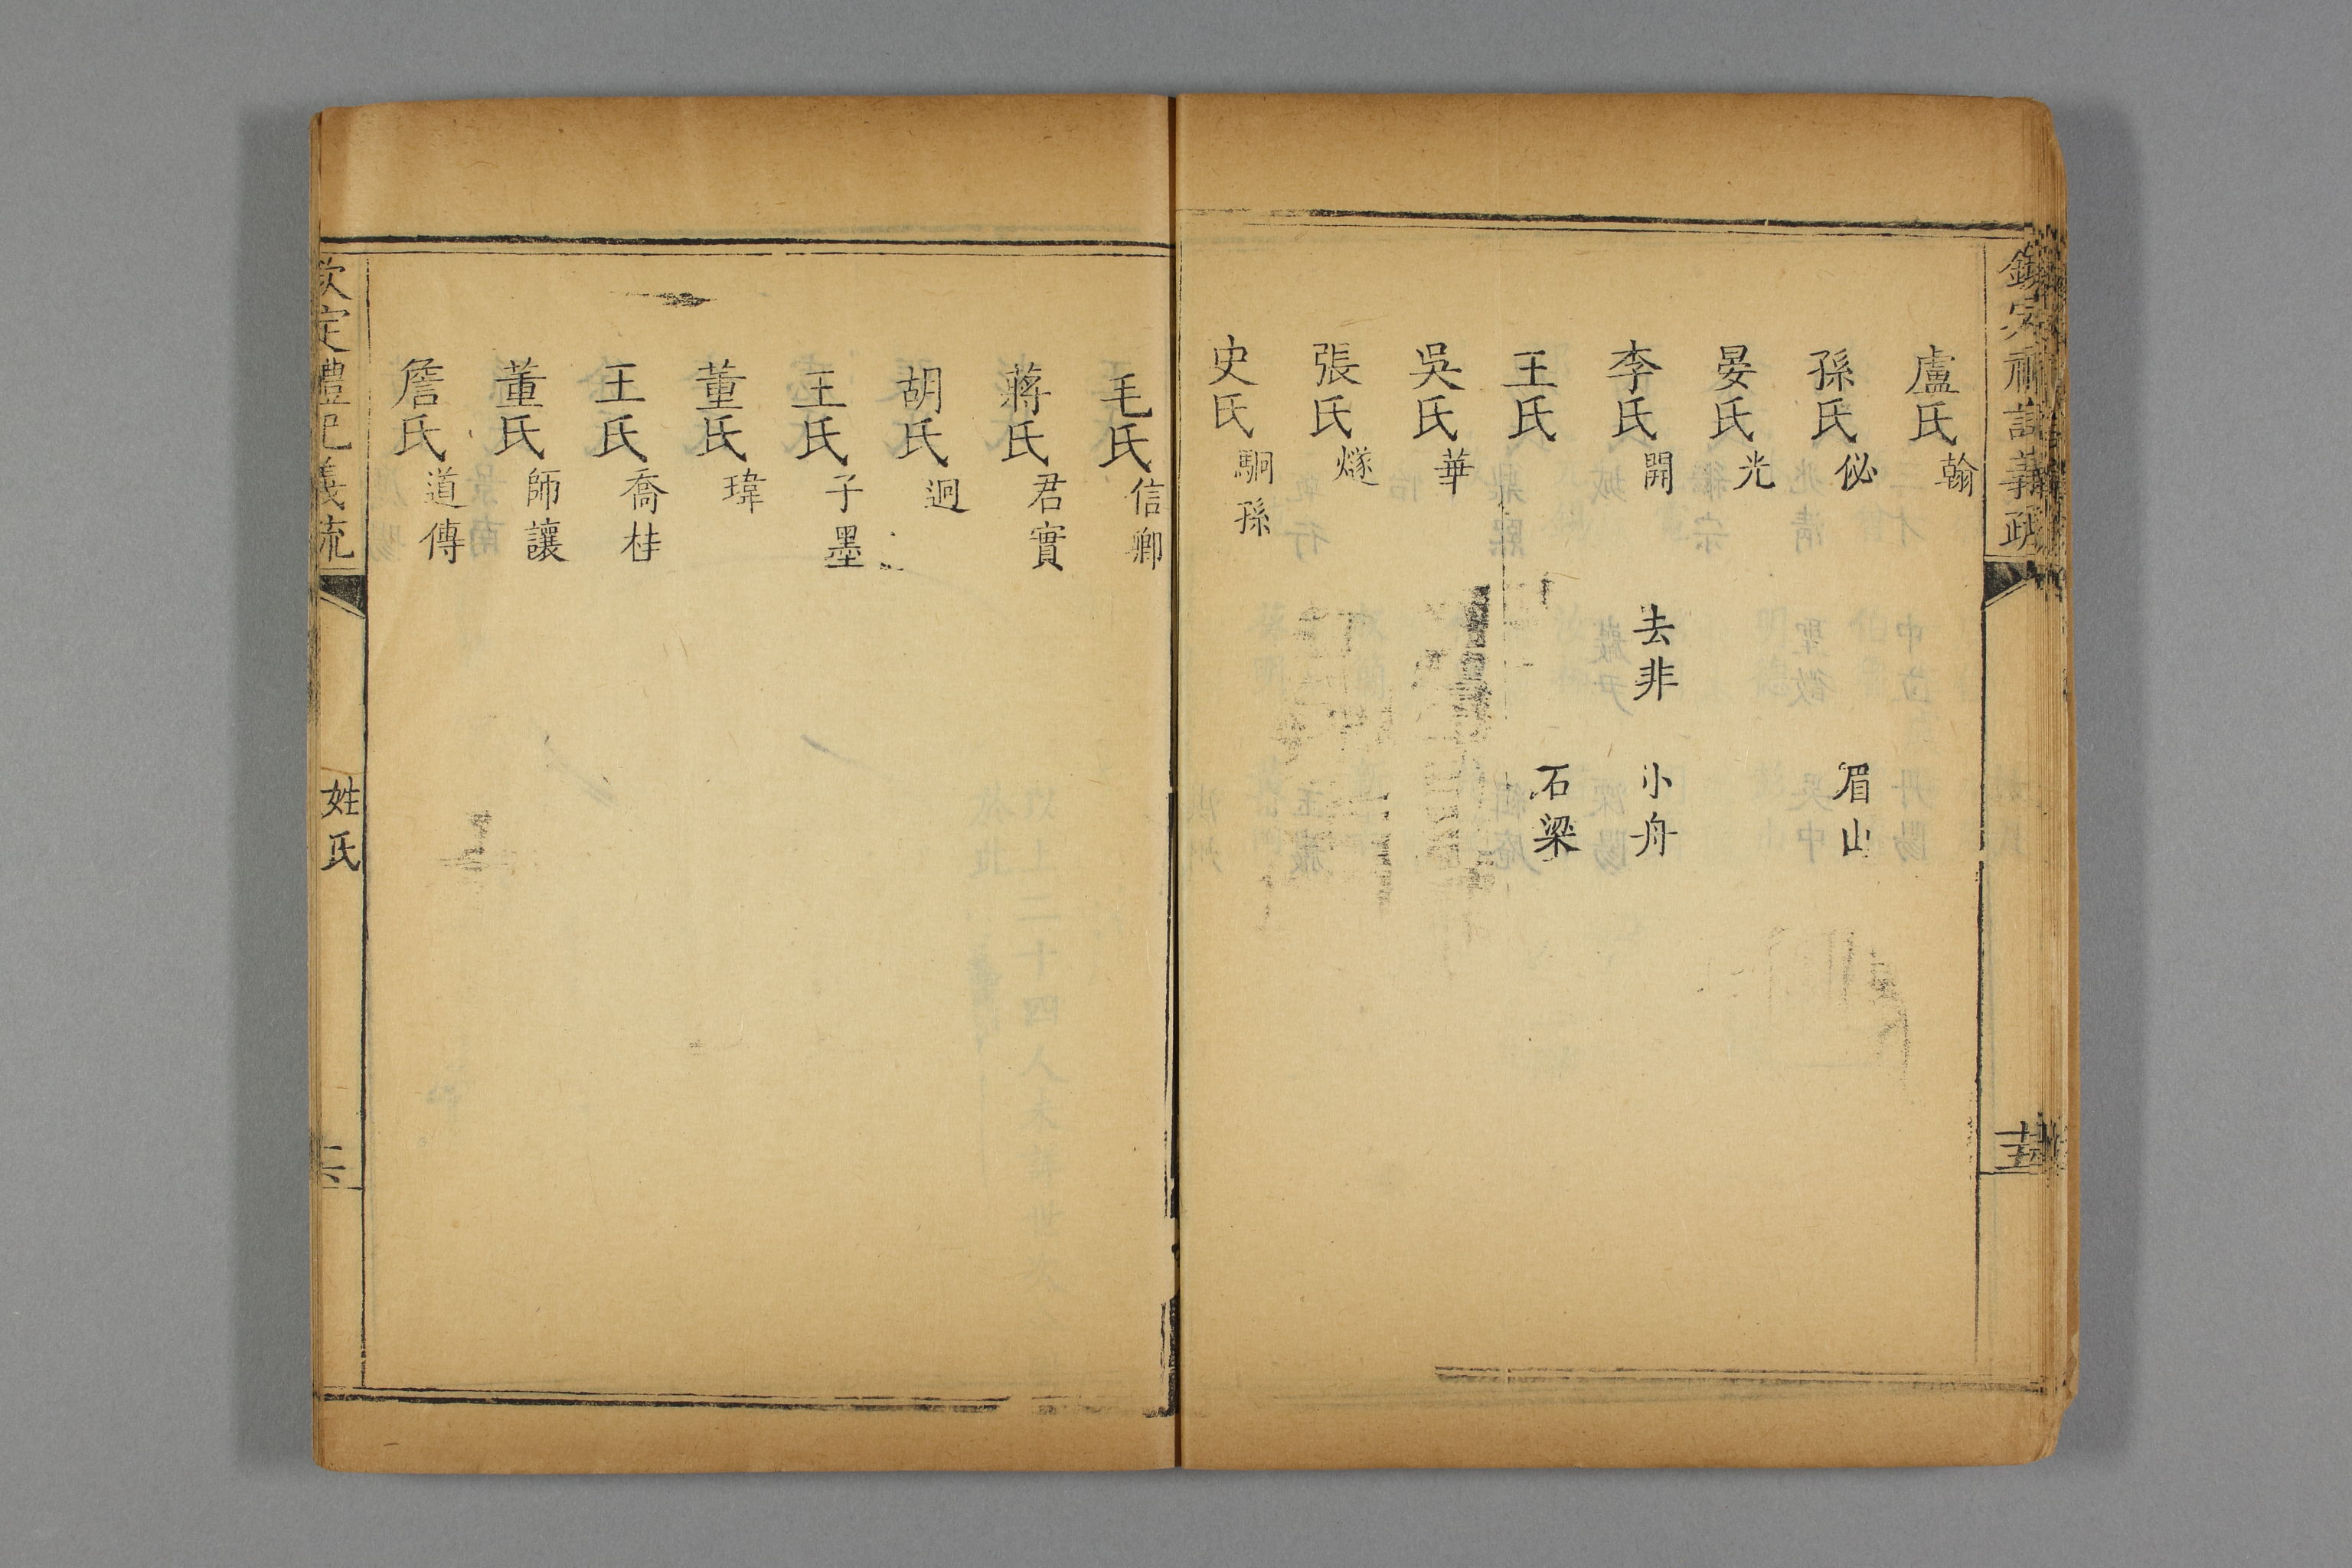 盧氏翰
孫氏佖　眉山
晏氏光
李氏開　去非　小舟
王氏　石梁
吳氏華
張氏燧
史氏駉孫
毛氏信卿
蔣氏君實
胡氏迥
王氏子墨
董氏瑋
王氏喬桂
董氏師讓
詹氏道傳
欽定禮記義疏　姓氏